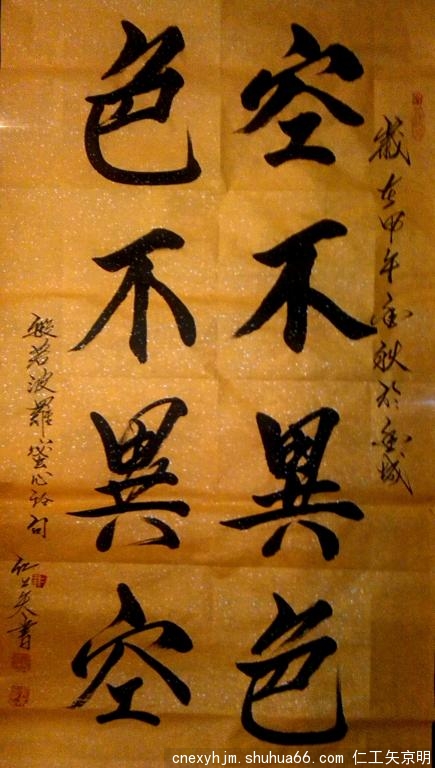 歲在甲午金秋於金城
空不異色
色不異空
般若波羅蜜心經句
仁工矢書
cnexyhjm.shuhua66.com 仁工矢京明